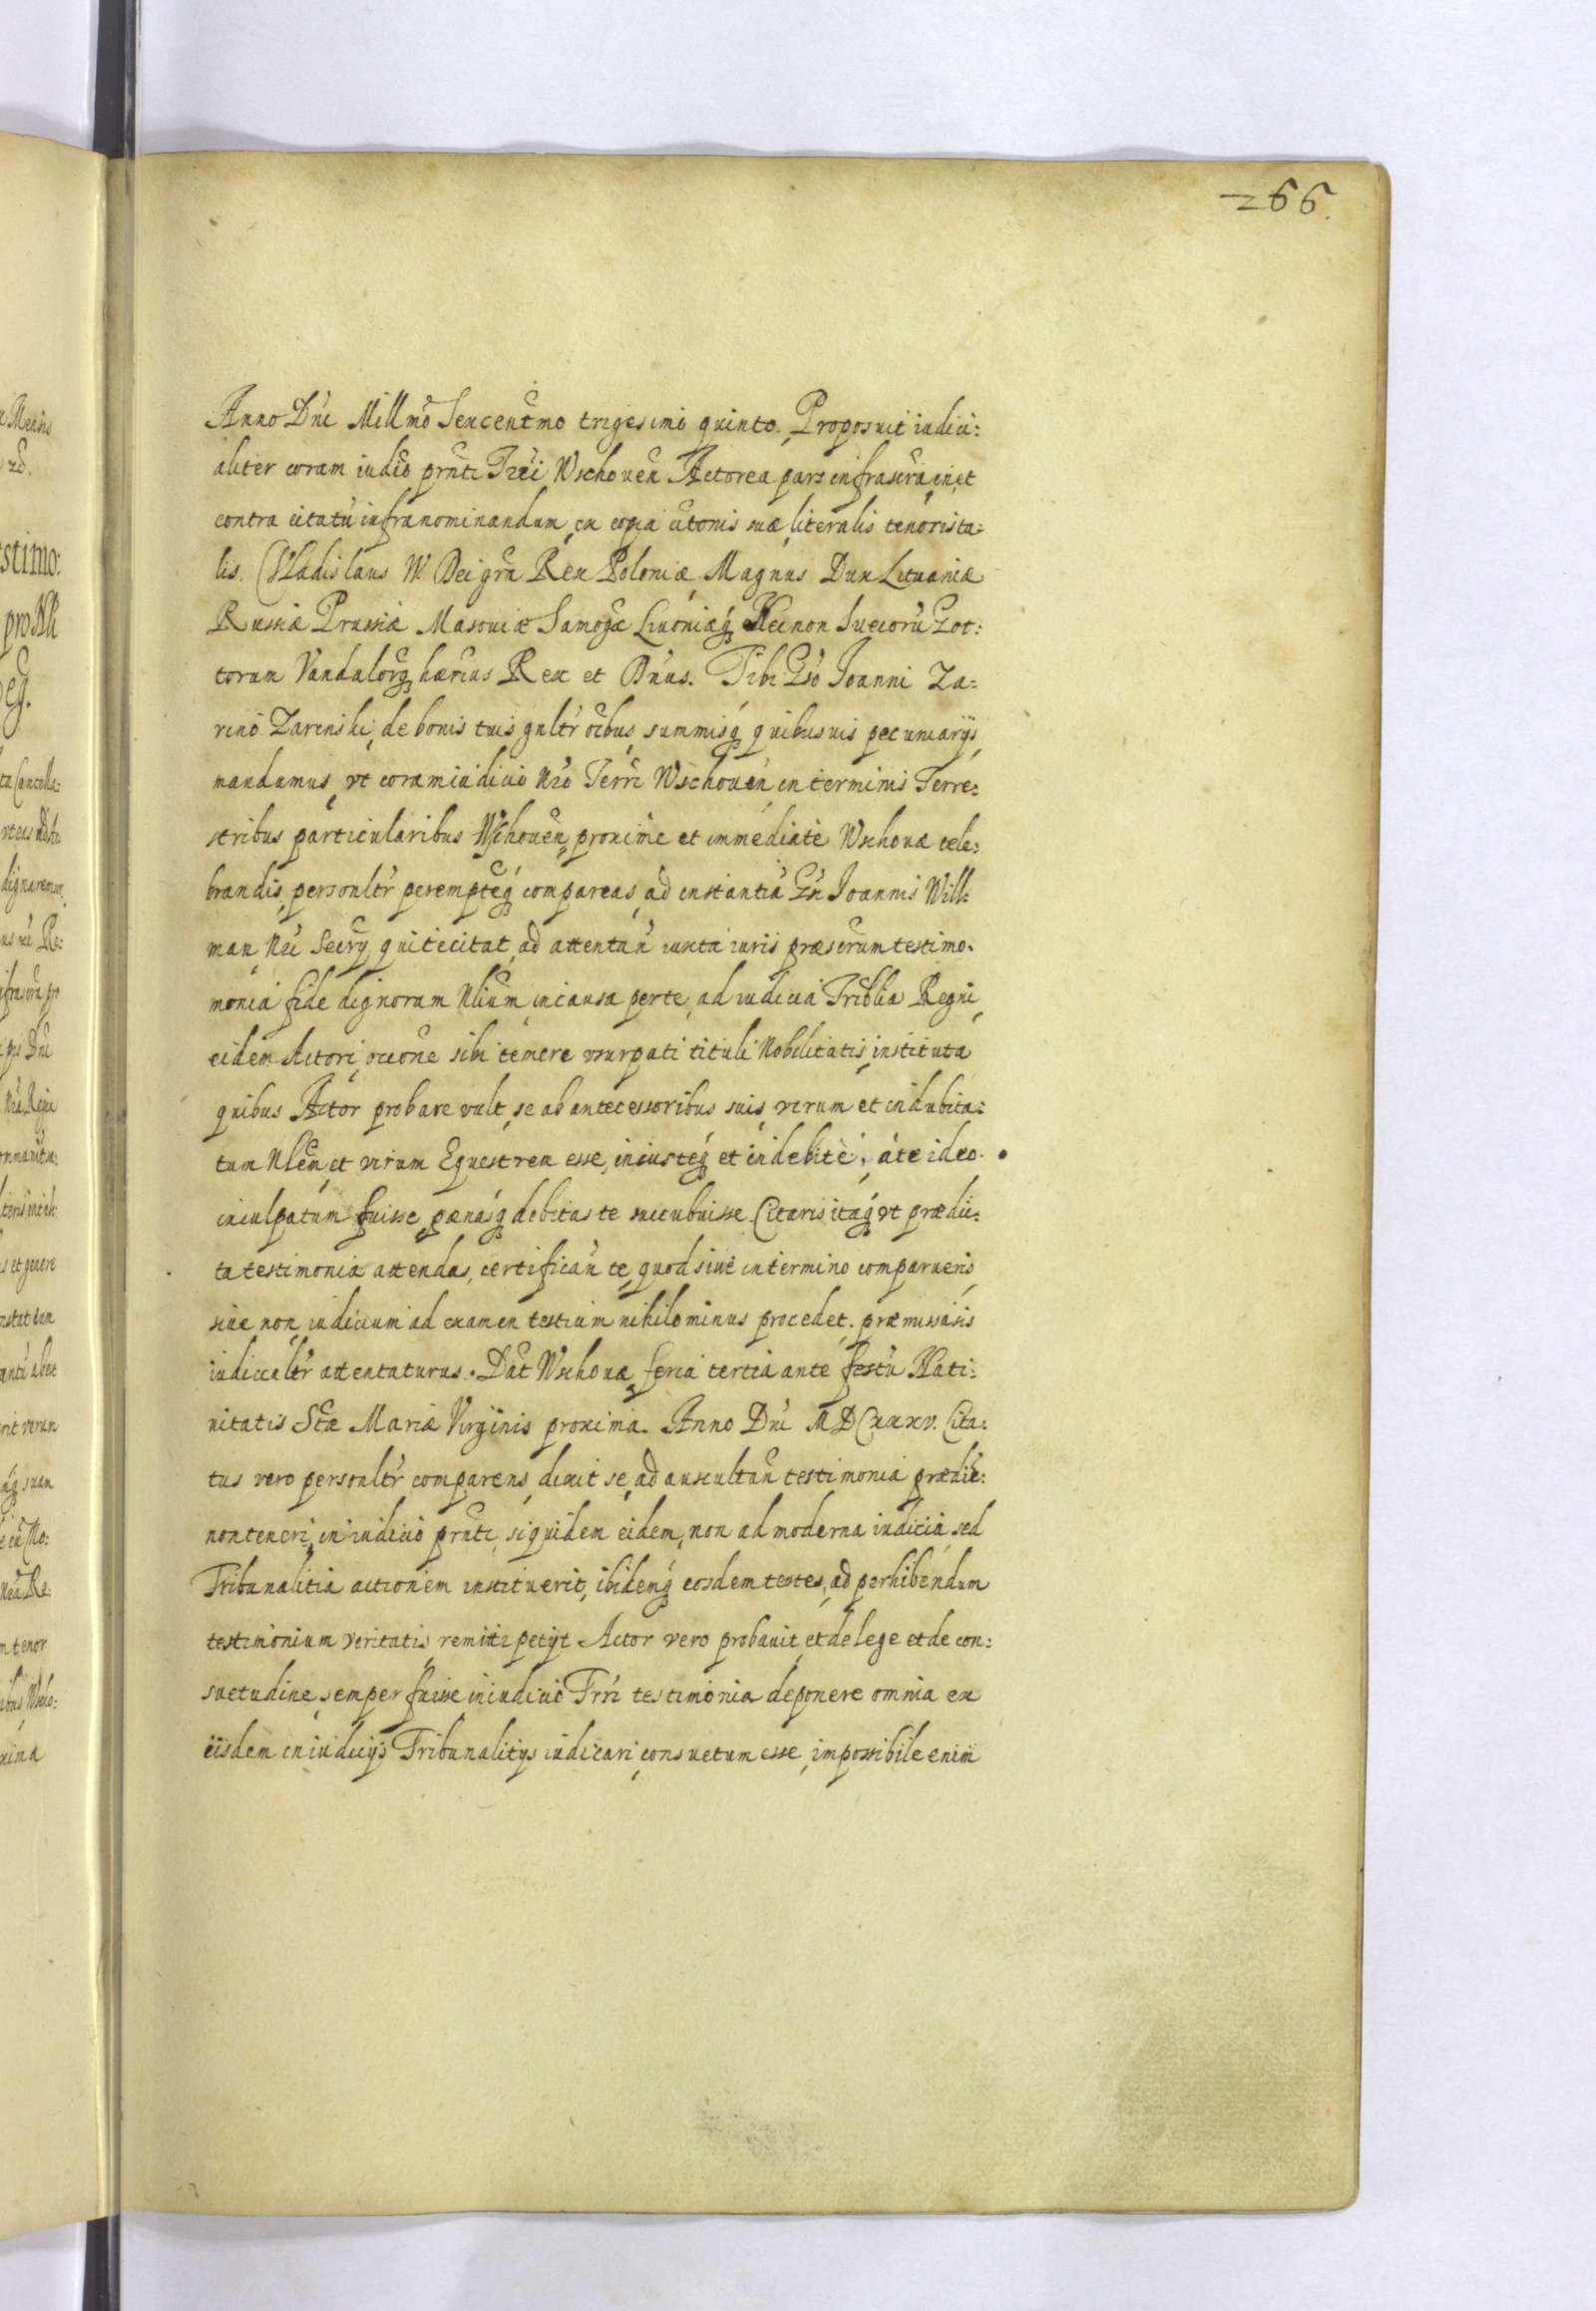 266.
Anno Dni Millmo Sexcentmo trigesimo quinto. Proposuit iudici:
aliter coram iudio prnti Trri Wschoven Actorea pars infrascra, in et
contra citatũ infranominandum, ex copia citonis suæ, literalis tenoris ta:
lis. Vladislaus IV Dei gra Rex Poloniæ Magnus Dux Lituaniæ
Russiæ Prussiæ Masoviæ Samogæ Livoniæq Necnon Suecorũ Got:
torum Vandalorq hærius Rex et Dnus. Tibi Gso Joanni Za:
reno Zarenski, de bonis tuis gnltr oibus, summisq quibusuis pecuniarijs
mandamus, vt coram iudicio Nro Terri Wschoven in terminis Terre:
stribus particularibus Wschoven, proxime et immediate Wschovæ cele:
brandis, personltr perempteq compareas, ad instantiã Gn Joannis Will:
man Nri Secrij qui te citat, ad attentan iuxta iuris præscrum testimo:
monia fide dignorum Nlium, in causa per te, ad iudicia Triblia Regni,
eidem Actori, occone sibi temere vsurpati tituli Nobilitatis, instituta
quibus Actor probare vult, se ab antecessoribus suis, verum et indubita:
tum Nlem, et virum Equestrem esse, iniusteq et indebite, a te ideo
inculpatum fuisse, pænasq debitas te succubuisse. Citaris itaq vt prædic:
ta testimonia attendas, certifican te, quod siue in termino comparueris
siue non, iudicium ad examen testium nihilominus procedet. præmissis
iudiccaltr attentaturus. Dat Wschovæ feria tertia ante festũ Nati:
uitatis Stæ Mariæ Virginis proxima. Anno Dni MDCxxxv. Cita:
tus vero personltr comparens, dixit se, ad auscultan testimonia prædic:
non teneri, in iudicio prnti, siquidem eidem, non ad moderna iudicia, sed
Tribunalitia actionem instituerit, ibidemq eosdem testes, ad perhibendum
testimonium veritatis, remitti petijt Actor vero probauit, et de lege et de con:
suetudine, semper fuisse in iudicio Trri testimonia deponere omnia ex
eisdem in iudicijs Tribunalitijs iudicari, consuetum esse, impossibile enim